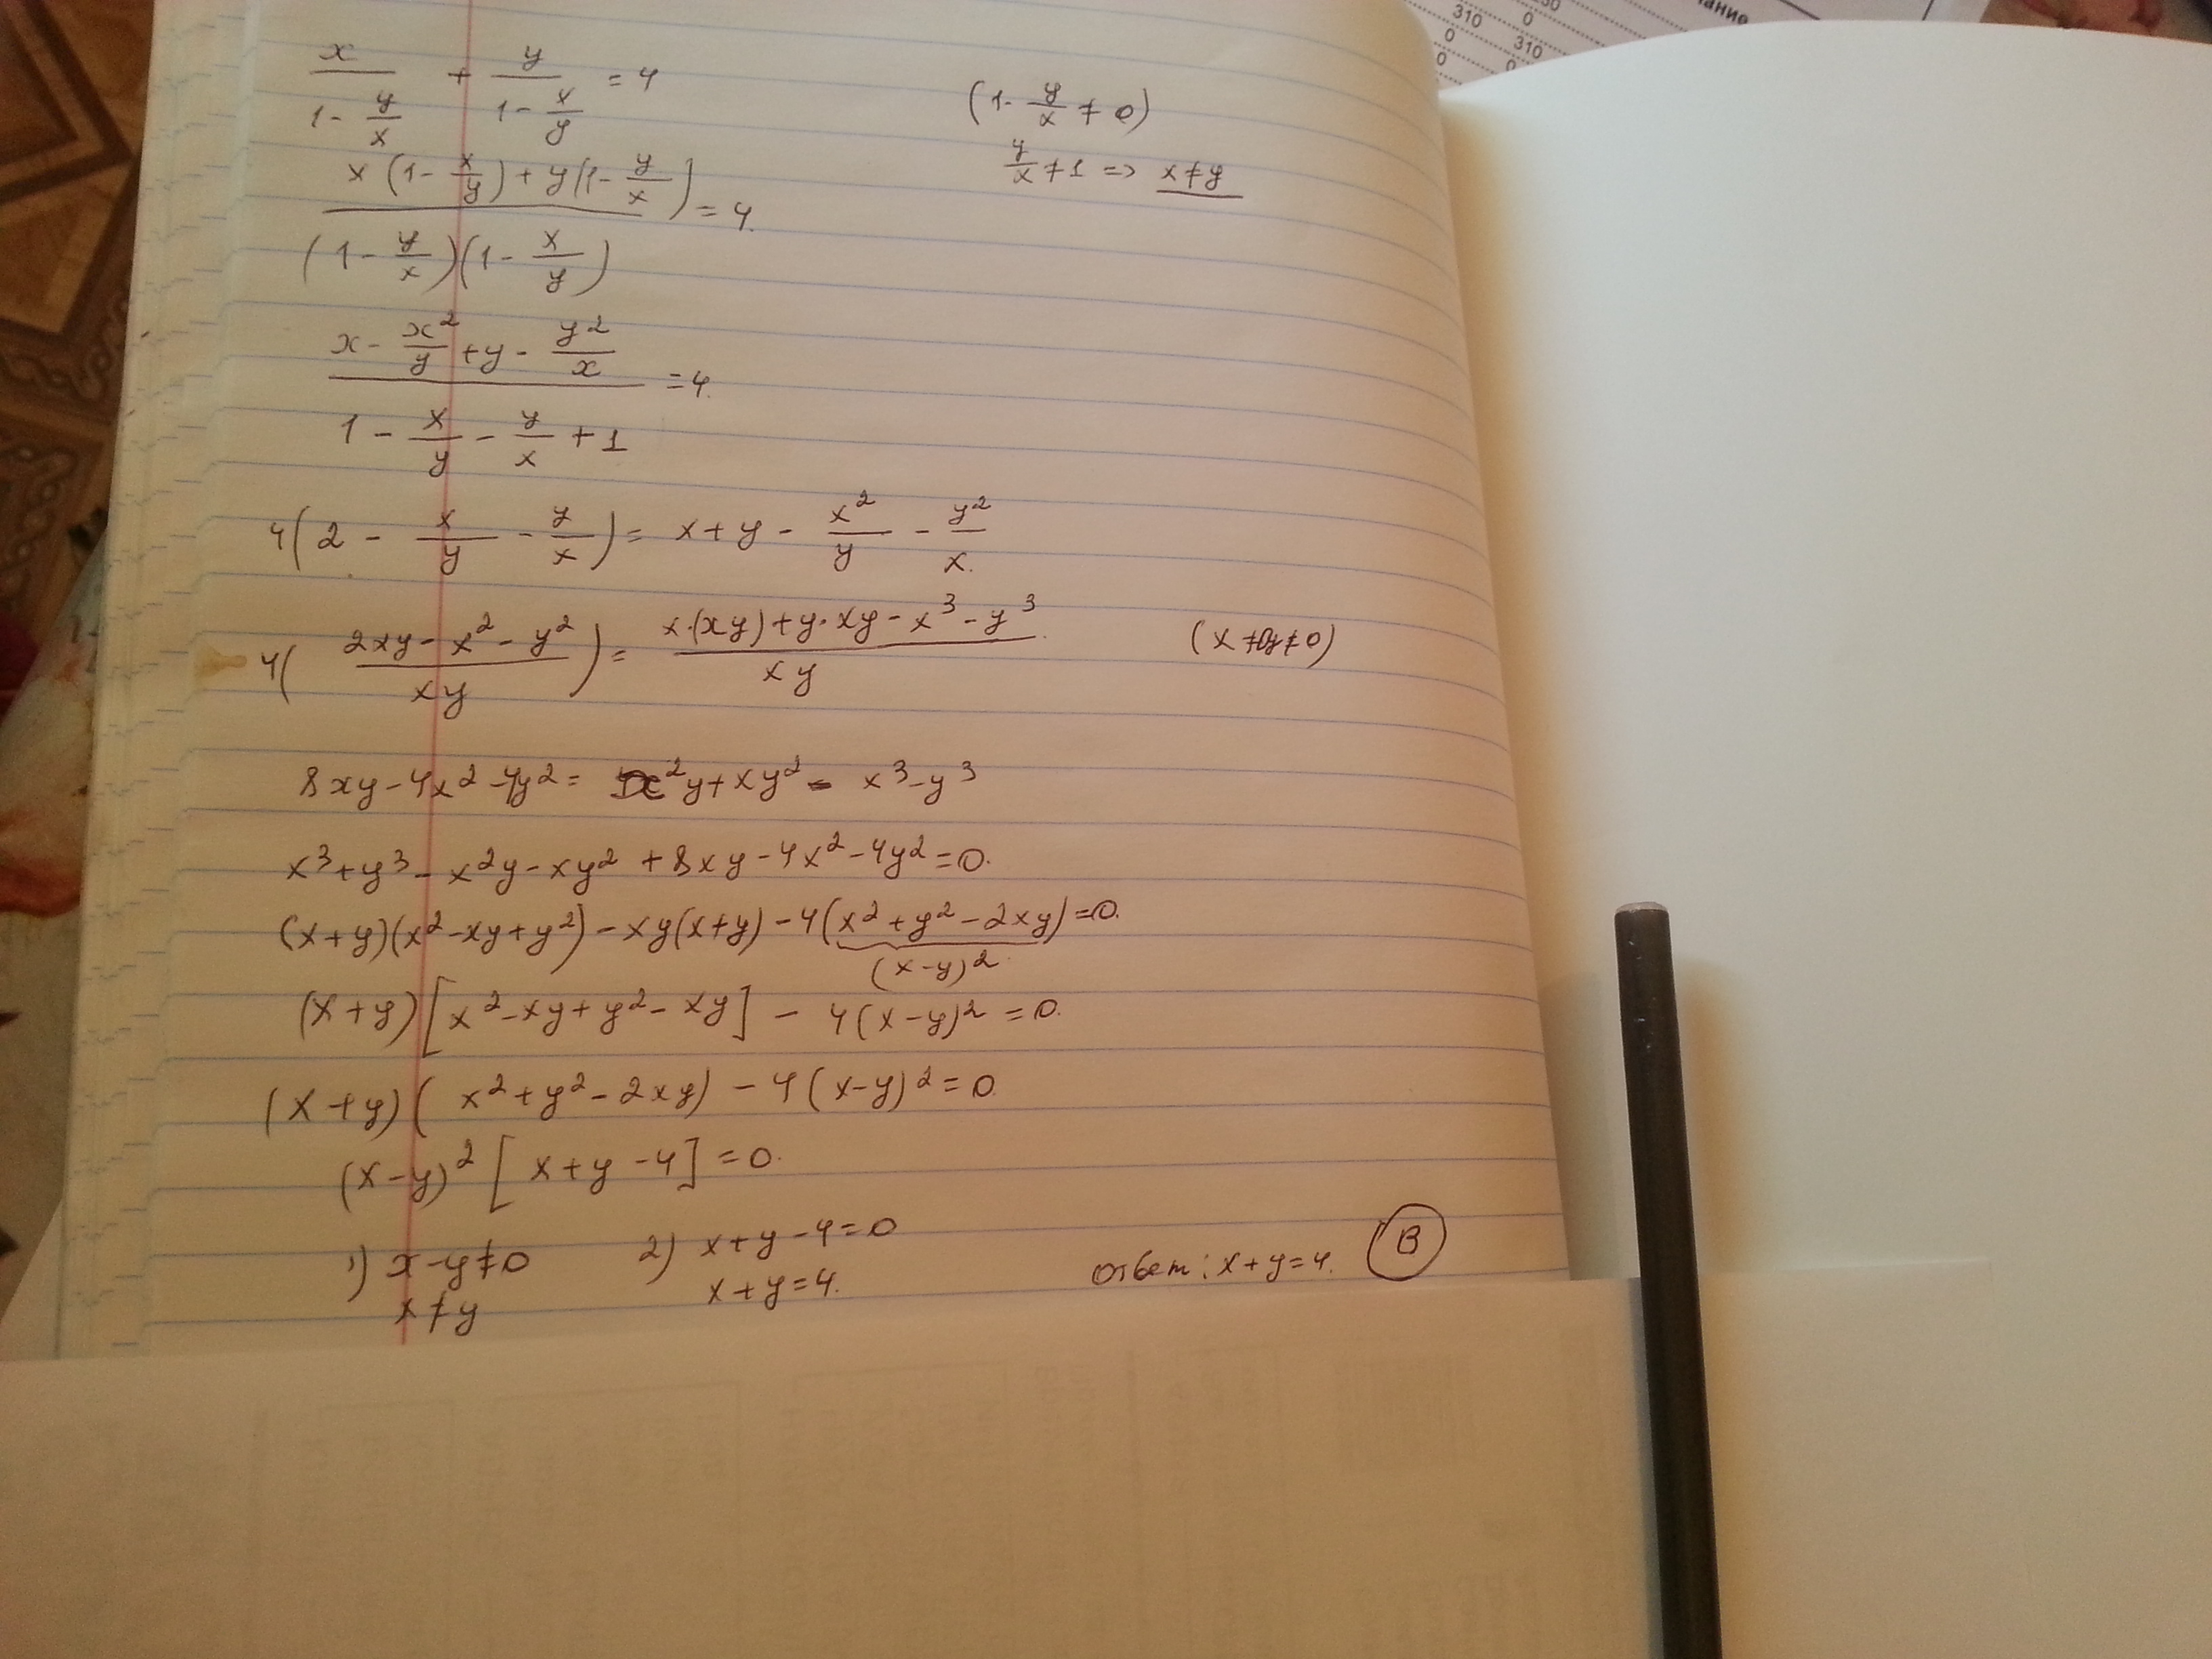 x/(1 - y/x) + y/(1 - x/y) = 4
(1 - y/x ≠ 0)
y/x ≠ 1 => x ≠ y
(x(1 - x/y) + y(1 - y/x))/((1 - y/x)(1 - x/y)) = 4.
(x - x²/y + y - y²/x)/(1 - x/y - y/x + 1) = 4.
4(2 - x/y - y/x) = x + y - x²/y - y²/x.
4((2xy - x² - y²)/(xy)) = (x·(xy) + y·xy - x³ - y³)/(xy).
(x ≠ 0 y ≠ 0)
8xy - 4x² - 4y² = x²y + xy² - x³ - y³
x³ + y³ - x²y - xy² + 8xy - 4x² - 4y² = 0.
(x + y)(x² - xy + y²) - xy(x + y) - 4(x² + y² - 2xy) = 0.
(x - y)²
(x + y)[x² - xy + y² - xy] - 4(x - y)² = 0.
(x + y)(x² + y² - 2xy) - 4(x - y)² = 0.
(x - y)²[x + y - 4] = 0.
1) x - y ≠ 0
x ≠ y
2) x + y - 4 = 0
x + y = 4.
Ответ: x + y = 4.
B
310
0
310
0
0
0